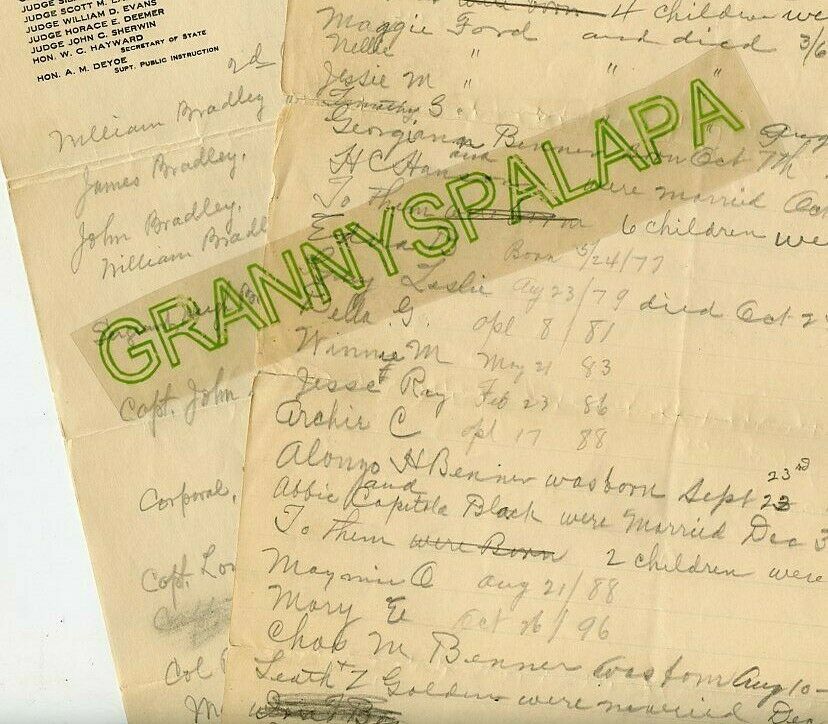 JUDGE SCOTT M.
JUDGE WILLIAM D. EVANS
JUDGE HORACE E. DEEMER
JUDGE JOHN C. SHERWIN
HON. W. C. HAYWARD
SECRETARY OF STATE
HON. A. M. DEYOE
SUPT. PUBLIC INSTRUCTION
2nd
William Bradley
James Bradley,
John Bradley,
William Bradl
Capt. John
Corporal,
Capt.
Col
4 children we
Maggie Ford and died 3/6
Nellie " " "
Jessie M " " "
Timothy S.
Georgiana Benner born Oct 7th
and
H C Han were married Oct
To them 6 children we
Born 5/24/77
Leslie Aug 23/79 died Oct 2
Della G. Apl 8/81
Winnie M May 21 83
Jesse F Ray Feb 23 86
Archie C Apl 17 88
Alonzo H Benner was born Sept 23rd
and
Abbie Capitola Black were married Dec 3
To them were Born 2 children were
Maymie O Aug 21/88
Mary E Oct 26/96
Chas M Benner was born Aug 10-
Leath Z Golden were married Dec
GRANNYSPALAPA